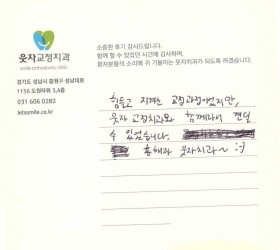 웃자교정치과
smile orthodontic clinic
경기도 성남시 중원구 성남대로
1156 도원타워 3,4층
031 606 0282
letssmile.co.kr
소중한 후기 감사드립니다.
함께 할 수 있었던 시간에 감사하며,
환자분들의 소리에 귀 기울이는 웃자치과가 되도록 하겠습니다.
힘들고 지겨운 교정과정이었지만,
웃자 교정치과와 함께라서 견딜
수 있었습니다.
흥해라 웃자치과~ :-)